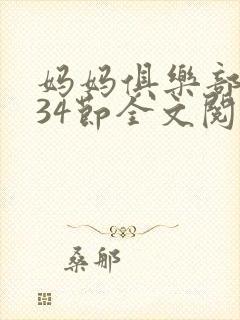 妈妈俱樂部
34節全文閱
桑那